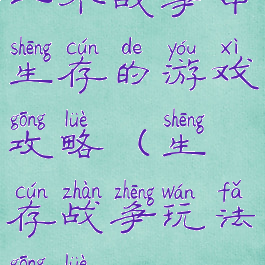 shēng cún de yóu xì
生存的游戏
gōng lüè shēng
攻略（生
cún zhàn zhēng wán fǎ
存战争玩法
gōng lüè